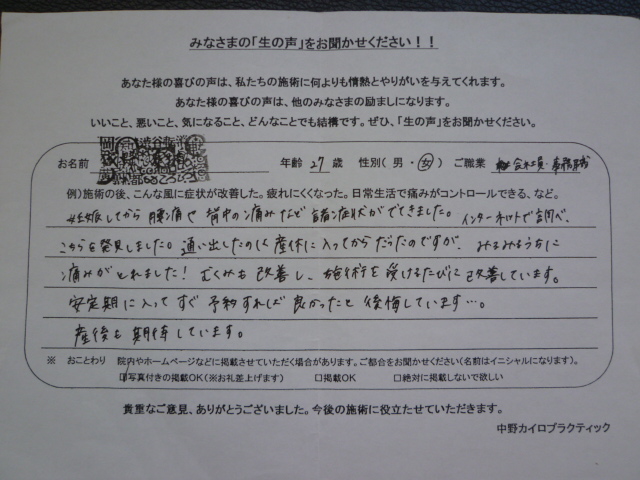 みなさまの「生の声」をお聞かせください！！
あなた様の喜びの声は、私たちの施術に何よりも情熱とやりがいを与えてくれます。
あなた様の喜びの声は、他のみなさまの励ましになります。
いいこと、悪いこと、気になること、どんなことでも結構です。ぜひ、「生の声」をお聞かせください。
お名前 年齢 27 歳 性別（男・女） ご職業 会社員・事務職
例）施術の後、こんな風に症状が改善した。疲れにくくなった。日常生活で痛みがコントロールできる、など。
妊娠してから腰痛や背中の痛みなど諸症状がでてきました。インターネットで調べ、
こちらを発見しました。通い出したのは産休に入ってからだったのですが、みるみるうちに
痛みがとれました！むくみも改善し、施術を受けるたびに改善しています。
安定期に入ってすぐ予約すれば良かったと後悔しています…。
産後も期待しています。
※ おことわり 院内やホームページなどに掲載させていただく場合があります。ご都合をお聞かせください（名前はイニシャルになります）。
☑写真付きの掲載OK（※お礼差上げます） □掲載OK □絶対に掲載しないで欲しい
貴重なご意見、ありがとうございました。今後の施術に役立たせていただきます。
中野カイロプラクティック